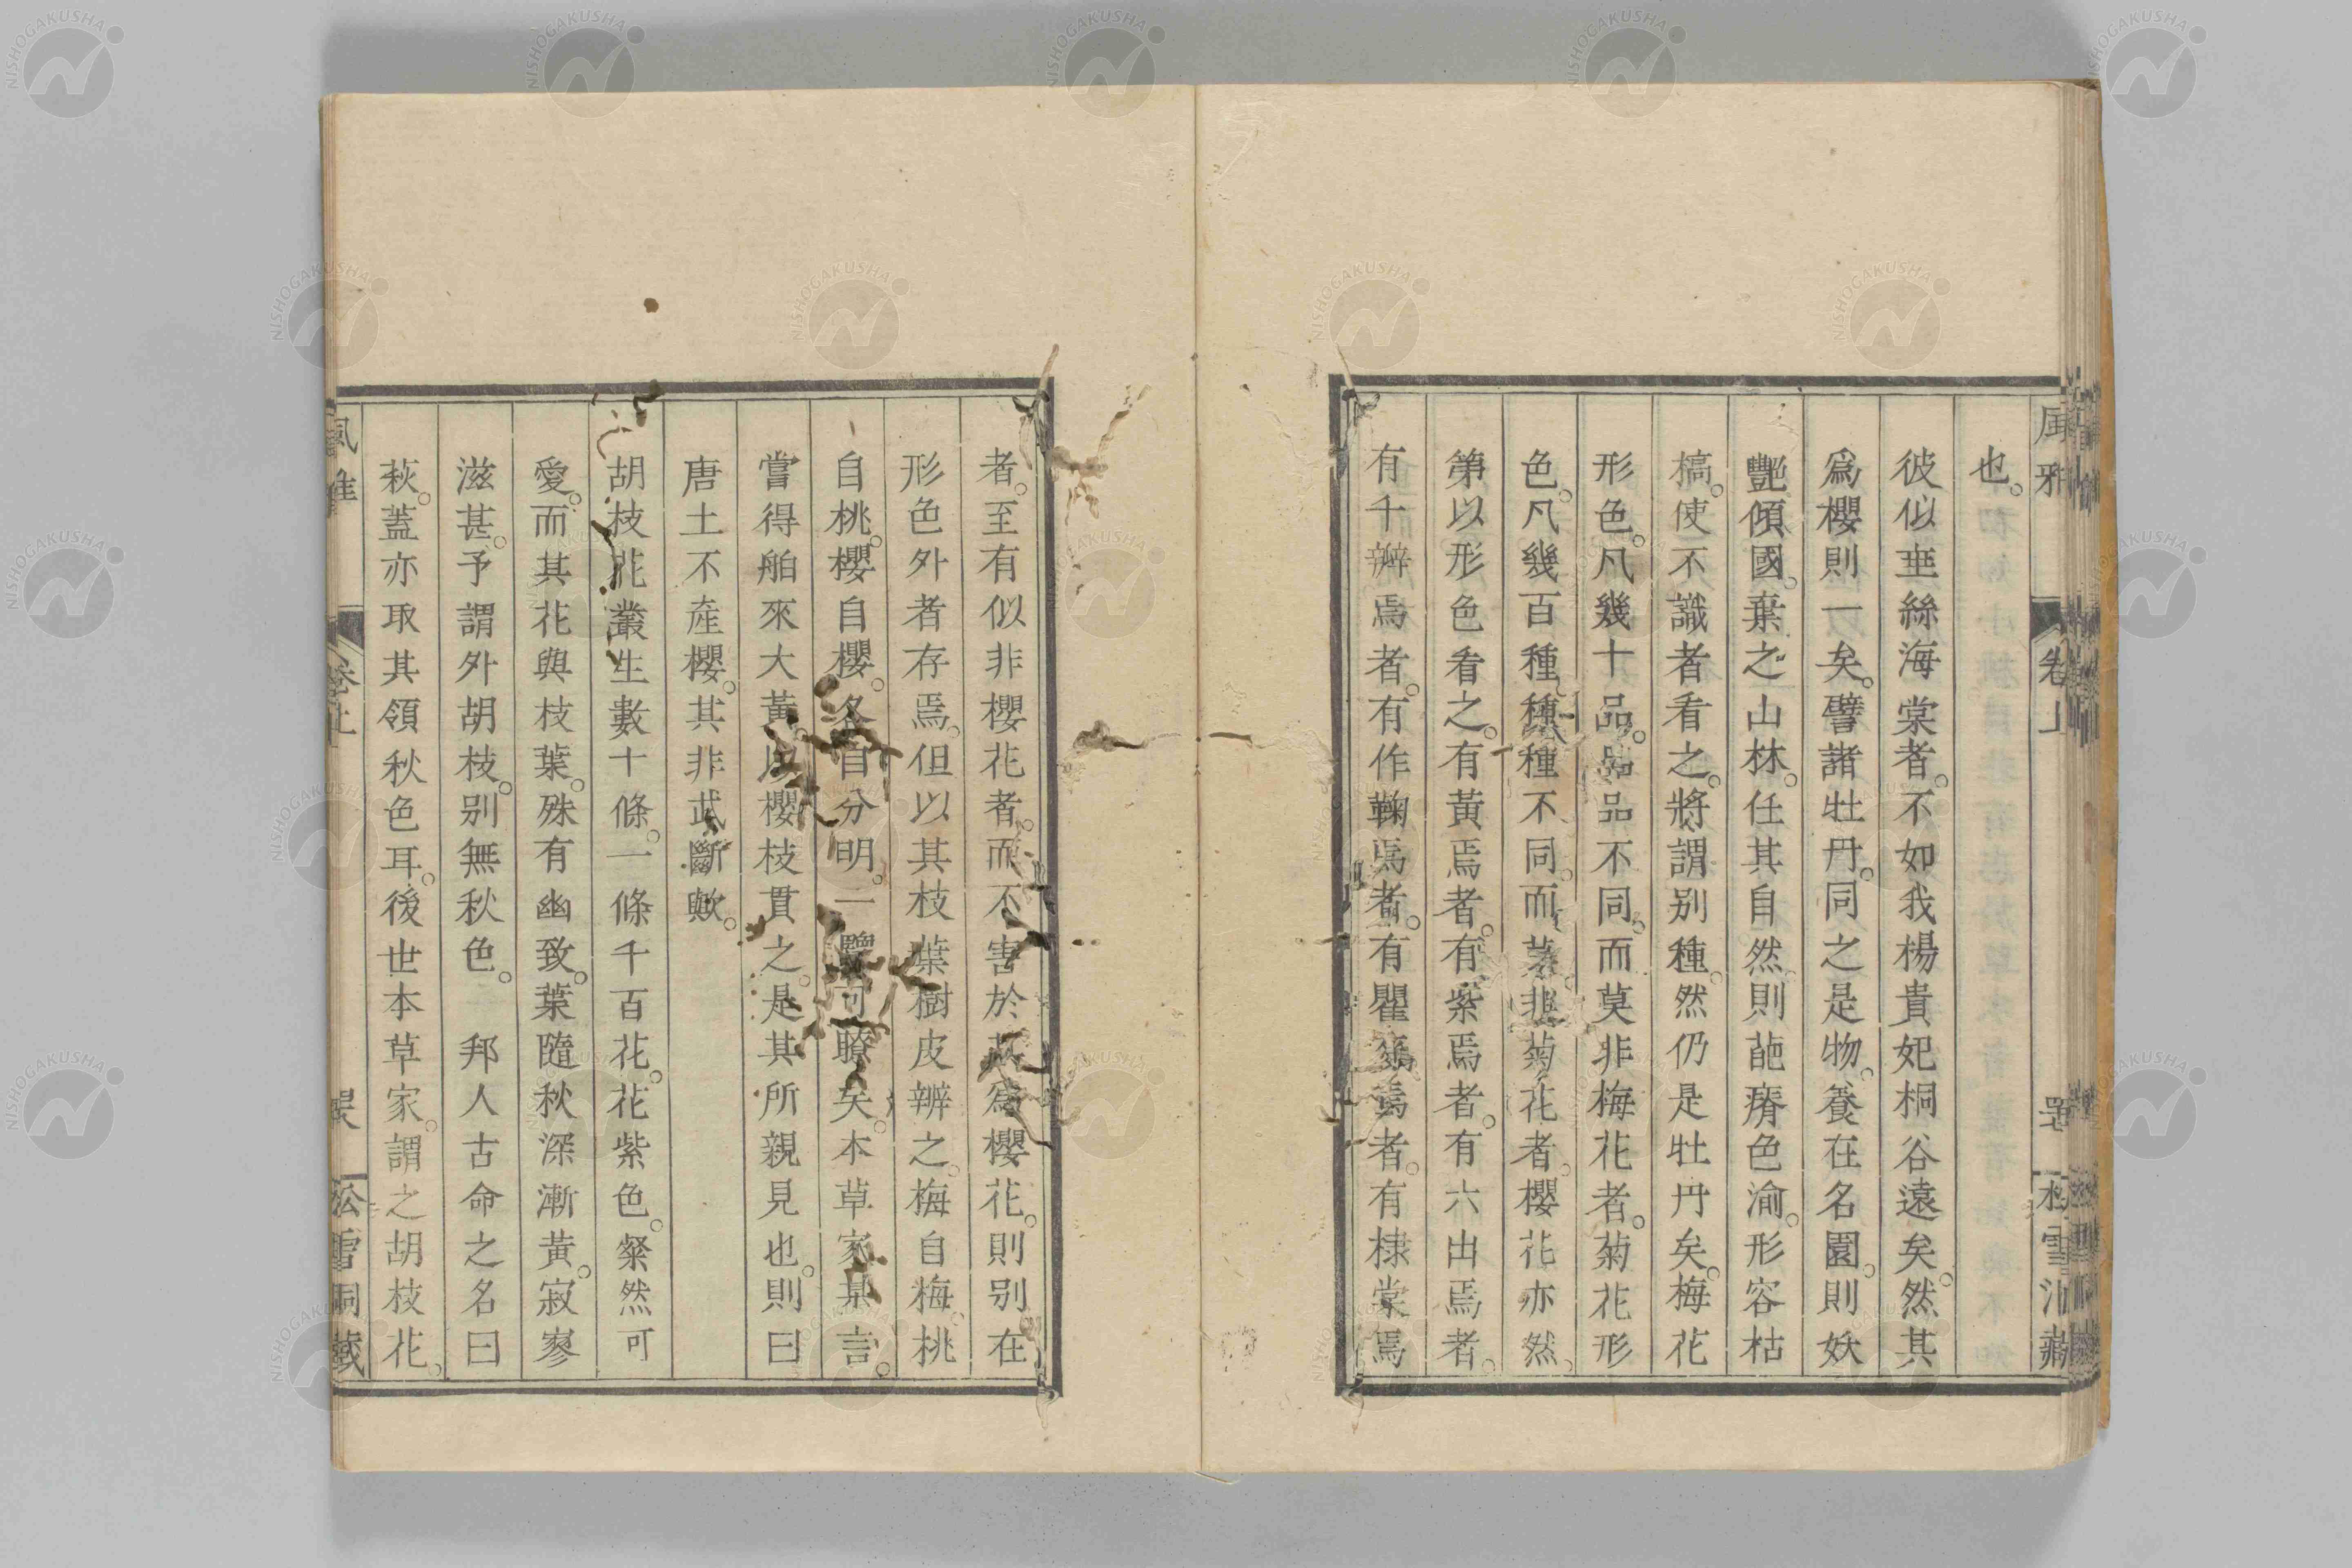 也。
彼似垂絲海棠者。不如我楊貴妃桐谷遠矣。然其
爲櫻則一矣。譬諸牡丹。同之是物。養在名園。則妖
艷傾國。棄之山林。任其自然。則葩瘠色渝。形容枯
槁。使不識者看之。將謂別種。然仍是牡丹矣。梅花
形色。凡幾十品。品品不同。而莫非梅花者。菊花形
色。凡幾百種。種種不同。而莫非菊花者。櫻花亦然。
第以形色看之。有黃焉者。有紫焉者。有六出焉者。
有千瓣焉者。有作鞠焉者。有瞿麥焉者。有棣棠焉
者。至有似非櫻花者。而不害於其爲櫻花。則別在
形色外者存焉。但以其枝葉樹皮辨之。梅自梅。桃
自桃。櫻自櫻。各自分明。一覽可瞭矣。本草家某言。
嘗得舶來大黃。以櫻枝貫之。是其所親見也。則曰
唐土不產櫻。其非武斷歟。
胡枝花叢生數十條。一條千百花。花紫色。粲然可
愛。而其花與枝葉。殊有幽致。葉隨秋深漸黃。寂寥
滋甚。予謂外胡枝。別無秋色。 邦人古命之名曰
萩。蓋亦取其領秋色耳。後世本草家。謂之胡枝花。
風雅
卷上